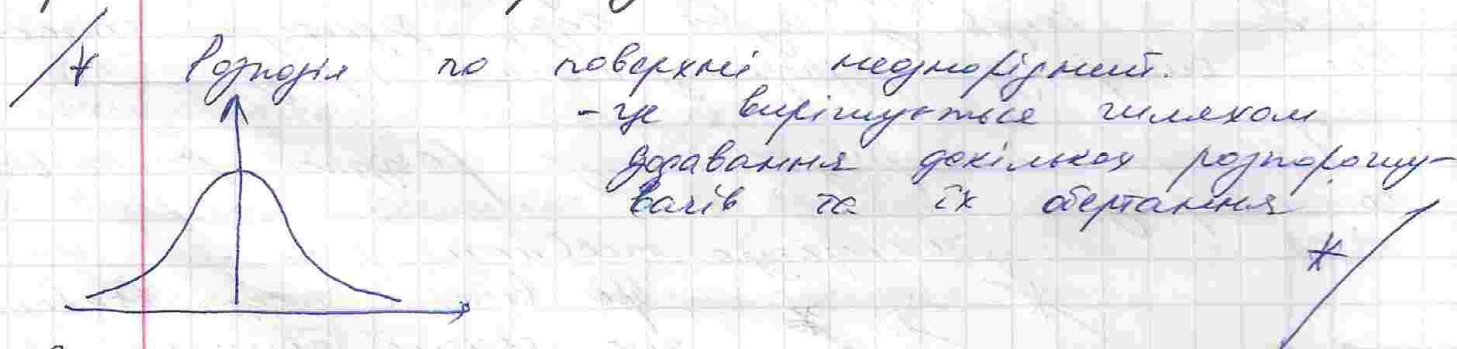 /* Розподіл по поверхні неоднорідний.
- це вирішується шляхом
додавання декількох розпорошу-
вачів та їх обертання
*/